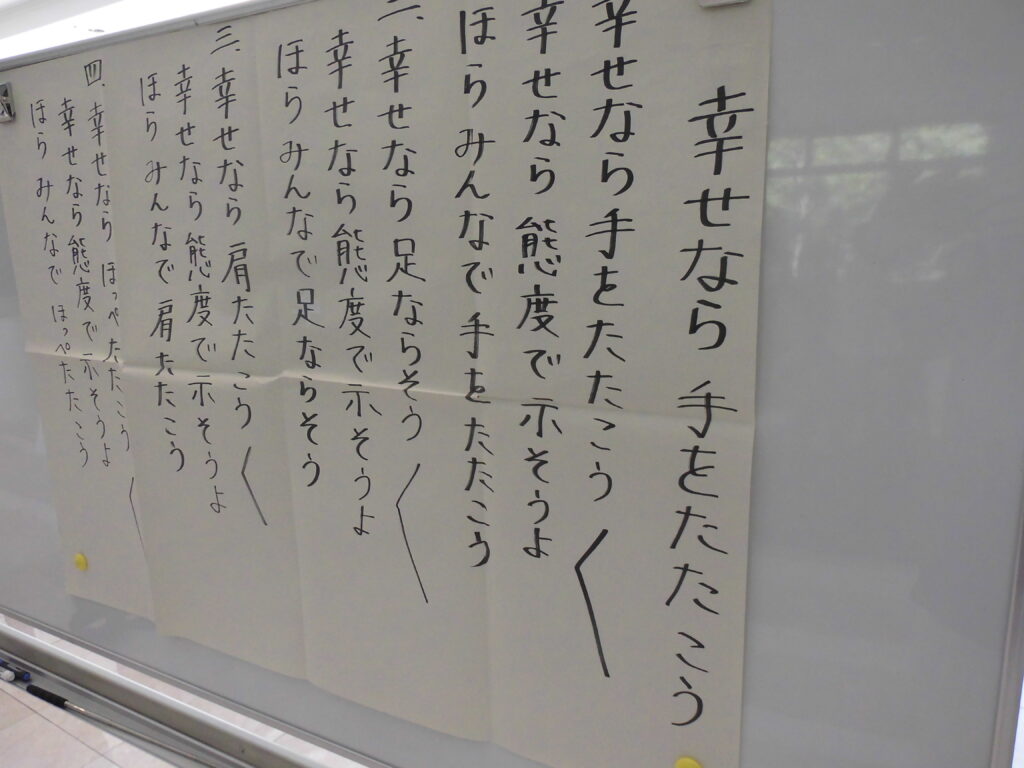 幸せなら 手をたたこう
幸せなら手をたたこう〱
幸せなら 態度で示そうよ
ほら みんなで 手をたたこう
二、幸せなら 足ならそう〱
幸せなら 態度で示そうよ
ほら みんなで足ならそう
三、幸せなら 肩たたこう〱
幸せなら 態度で示そうよ
ほら みんなで 肩たたこう
四、幸せなら ほっぺたたこう〱
幸せなら 態度で示そうよ
ほら みんなで ほっぺたたこう